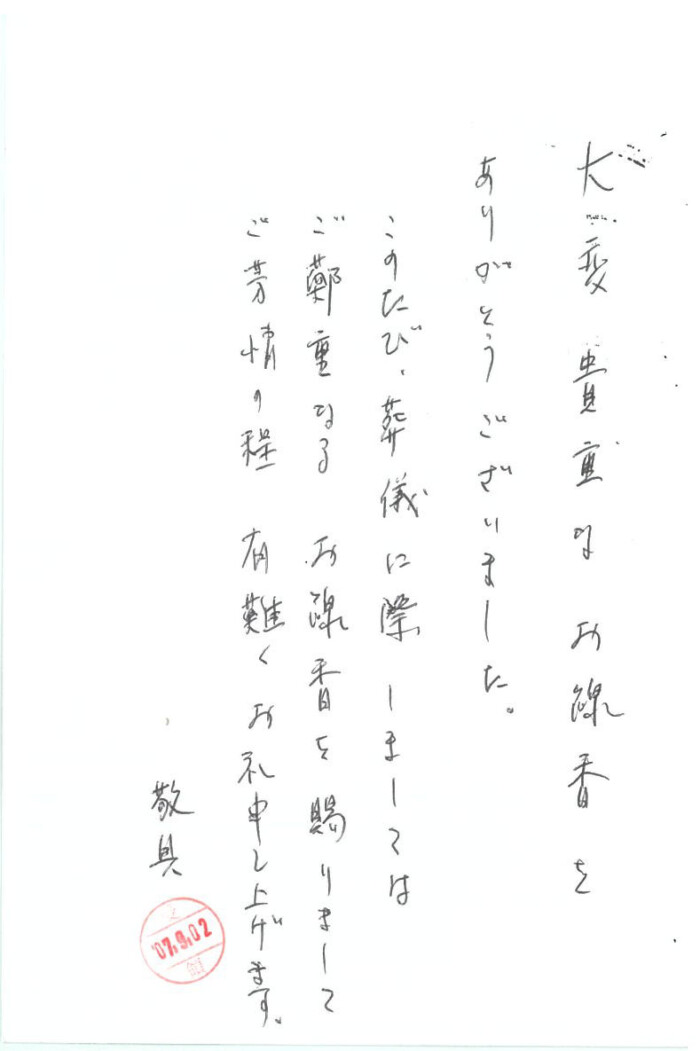 大変貴重なお線香を
ありがとうございました。
このたび、葬儀に際しましては
ご鄭重なるお線香を賜りまして
ご芳情の程有難くお礼申し上げます。
敬具
'07.9.02